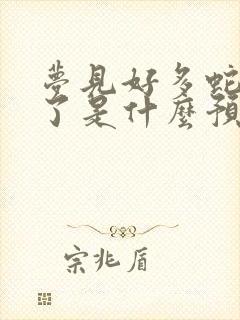 夢見好多蛇
了是什麼預
宗兆盾